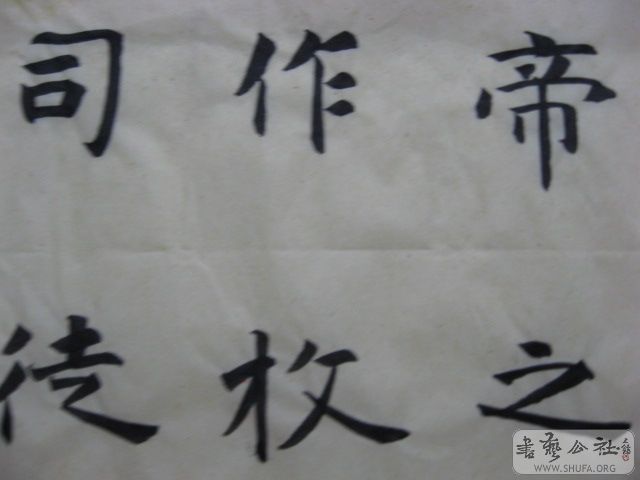 帝之
作牧
司徒
書藝公社
WWW.SHUFA.ORG